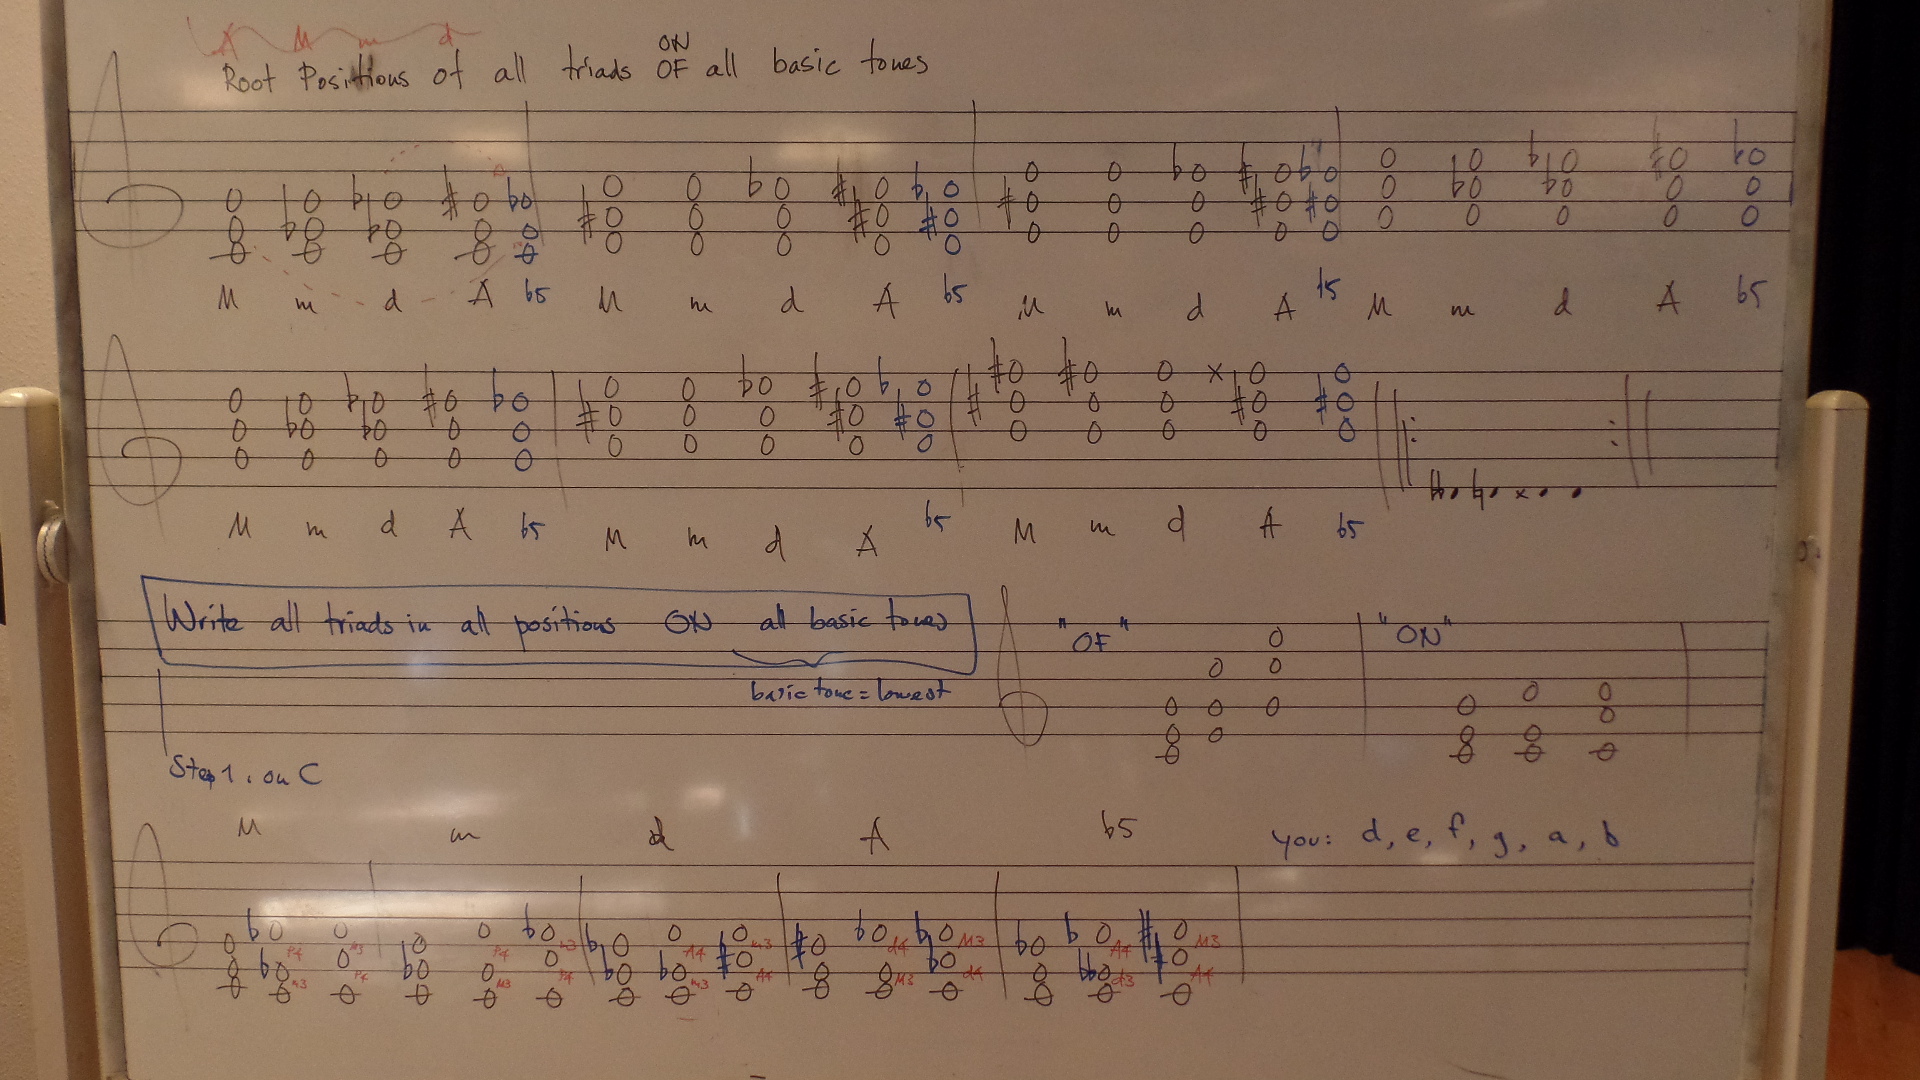 A M m d
ON
Root Positions of all triads OF all basic tones
M m d A b5 M m d A b5 M m d A b5 M m d A b5
M m d A b5 M m d A b5 M m d A b5
Write all triads in all positions ON all basic tones
basic tone = lowest
"OF" "ON"
Step 1. on C
M m d A b5 you: d, e, f, g, a, b
P4 M3 P4 A4 m3 d4 M3 A4 M3
m3 P4 M3 P4 m3 A4 M3 d4 d3 A4